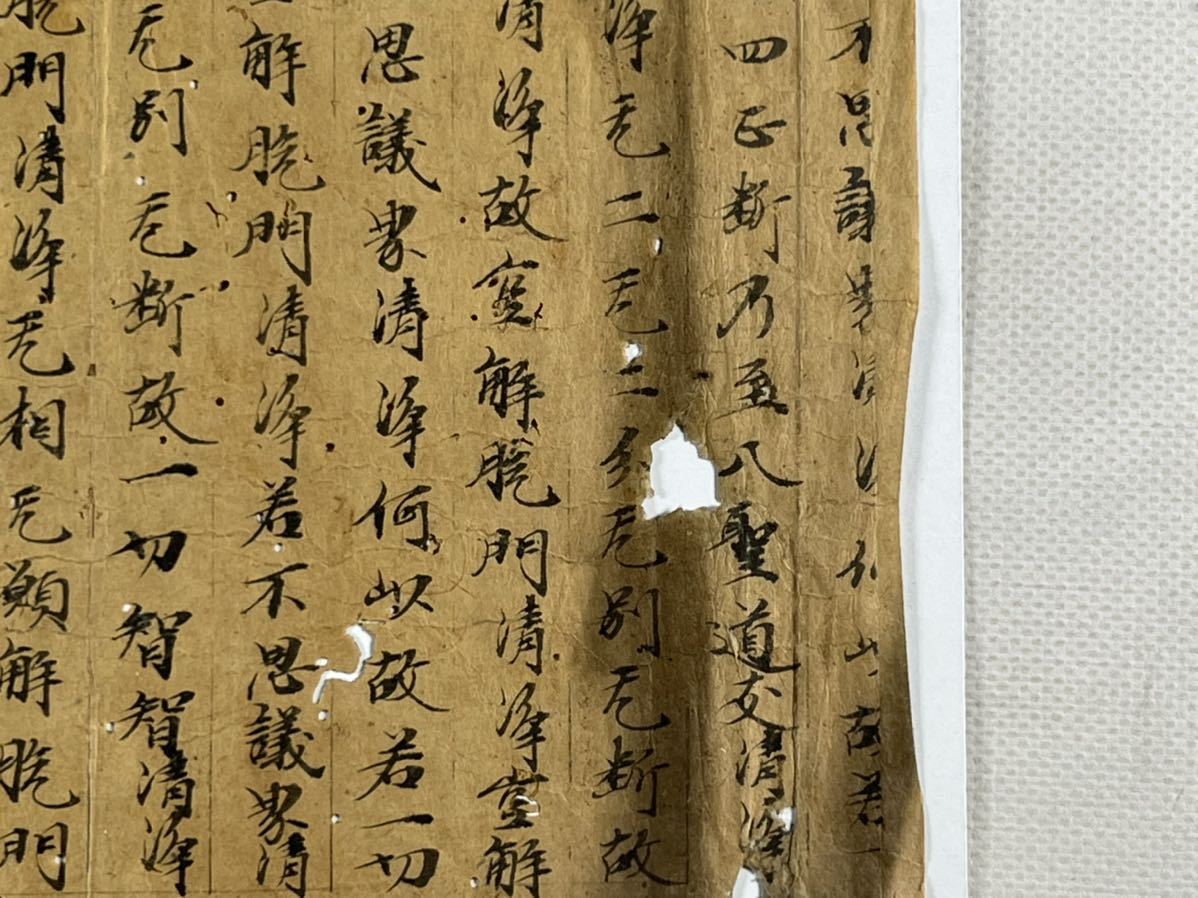 不思議界清淨何以故若一
四正断乃至八聖道支清淨
淨无二无二分无別无断故
清淨故空解脫門清淨空解
思議界清淨何以故若一切
解脫門清淨若不思議界清
无別无断故一切智智清淨
脫門清淨无相无願解脫門